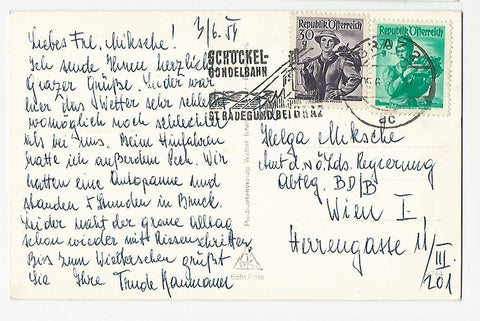 3/6.55
Liebes Frl. Miksche!
Ich sende Ihnen herzliche
Grazer Grüße. Leider war
hier das Wetter sehr schlecht
womöglich noch schlechter
als bei uns. Beim Hinfahren
hatte ich außerdem Pech. Wir
hatten eine Autopanne und
standen 5 Stunden in Bruck.
Leider naht der graue Alltag
schon wieder mit Riesenschritten
Bis zum Wiedersehen grüßt
Sie Ihre Trude
SCHÖCKEL-
GONDELBAHN
ST. RADEGUND BEI GRAZ
Republik Österreich
30 g
Republik Österreich
GRAZ
Postkartenverlag
Echt Foto
Helga Miksche
Amt d. n.ö. Lds. Regierung
Abtlg. BD/B
Wien I,
Herrengasse 11/
III.
201